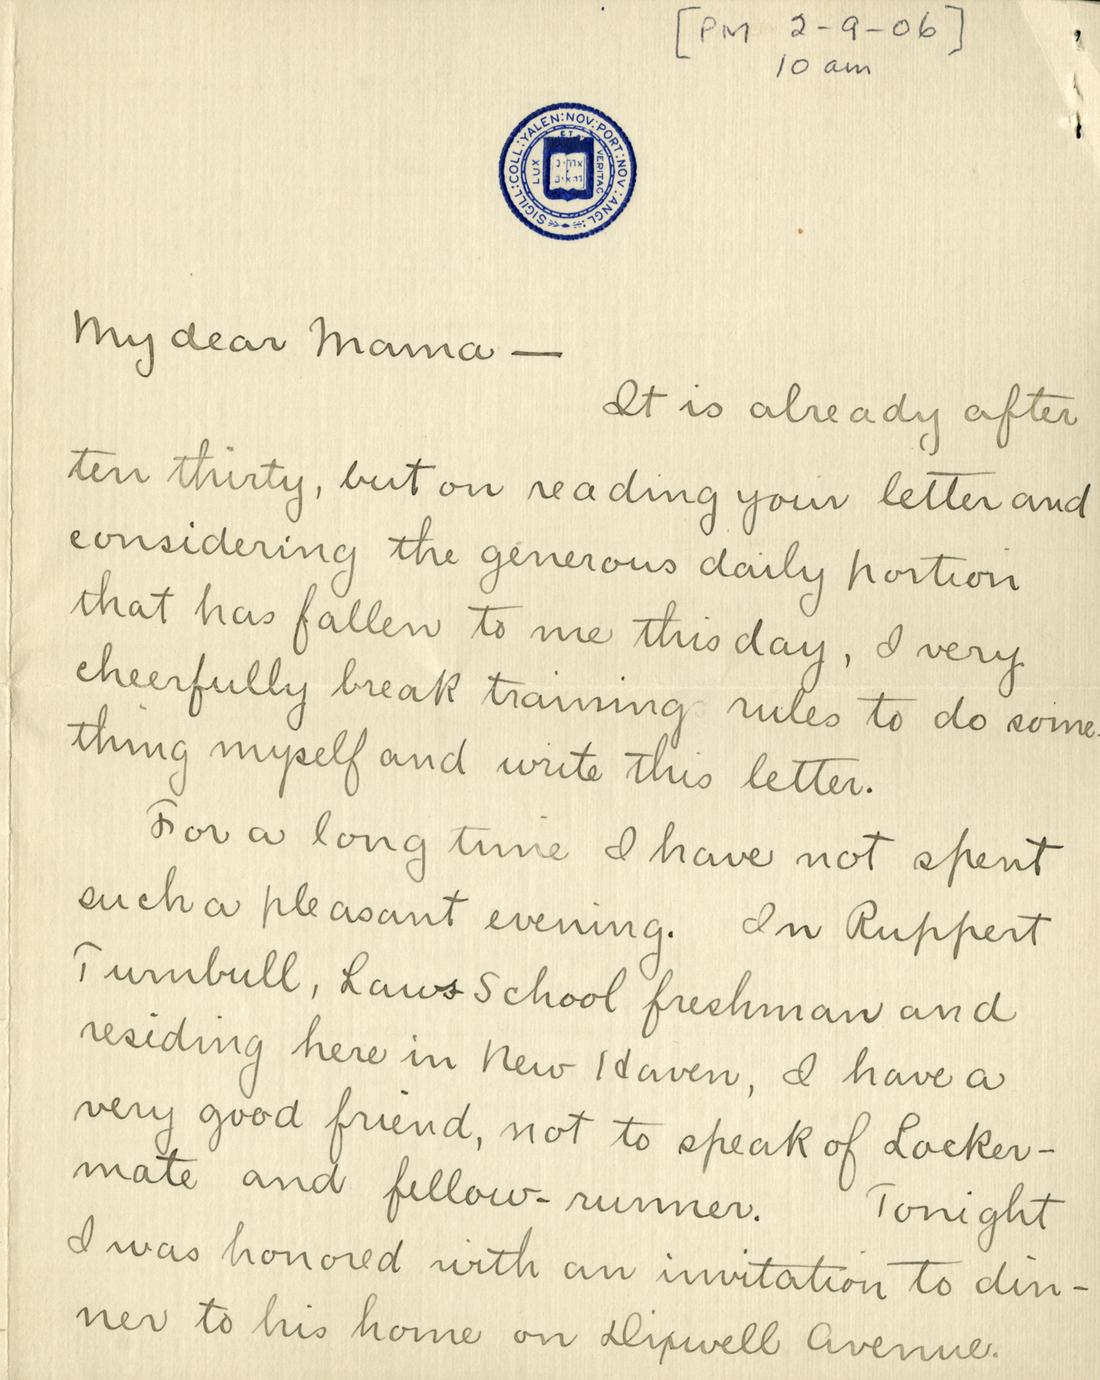 [PM 2-9-06]
10 am
SIGILL:COLL:YALEN:NOV:PORT:NOV:ANGL:
LUX ET VERITAS
My dear Mama —
It is already after
ten thirty, but on reading your letter and
considering the generous daily portion
that has fallen to me this day, I very
cheerfully break training rules to do some-
thing myself and write this letter.
For a long time I have not spent
such a pleasant evening. In Ruppert
Turnbull, Laws School freshman and
residing here in New Haven, I have a
very good friend, not to speak of Locker-
mate and fellow-runner. Tonight
I was honored with an invitation to din-
ner to his home on Dixwell Avenue.